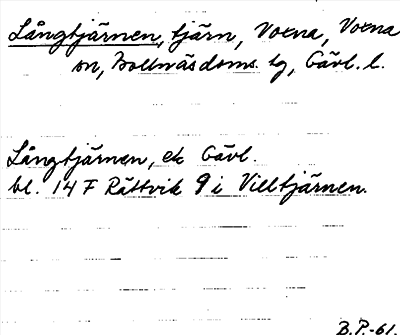 Långtjärnen, tjärn, Voxna, Voxna
sn, Bollnäs doms. tg, Gävl. l.
Långtjärnen, ek Gävl.
bl. 14 F Rättvik 9 i Villtjärnen.
B.P.-61.